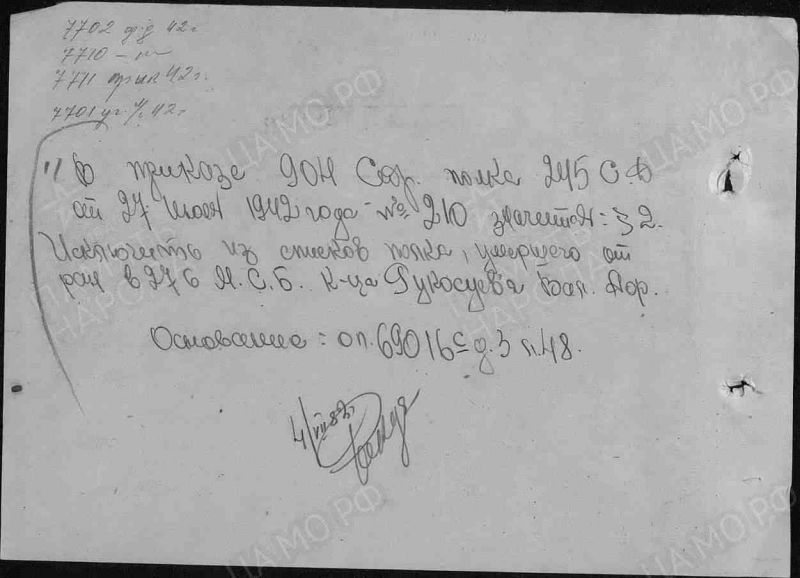 7702 ф.д 42г
7710 –
7711 42г.
7701 уг. 42г
"В приказе 904 Сар. полка 245 СД
от 27 июля 1942 года № 210 значится: § 2.
Исключить из списков полка, умершего от
ран в 276 М.С.Б. К-ца Рукосуева Вал. Пор.
Основание: оп. 69016с д. 3 л. 48.
4/VIII 82г